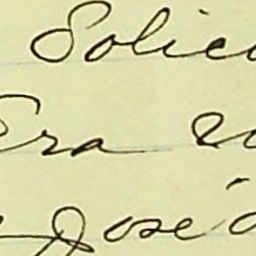 Solic
Era
José